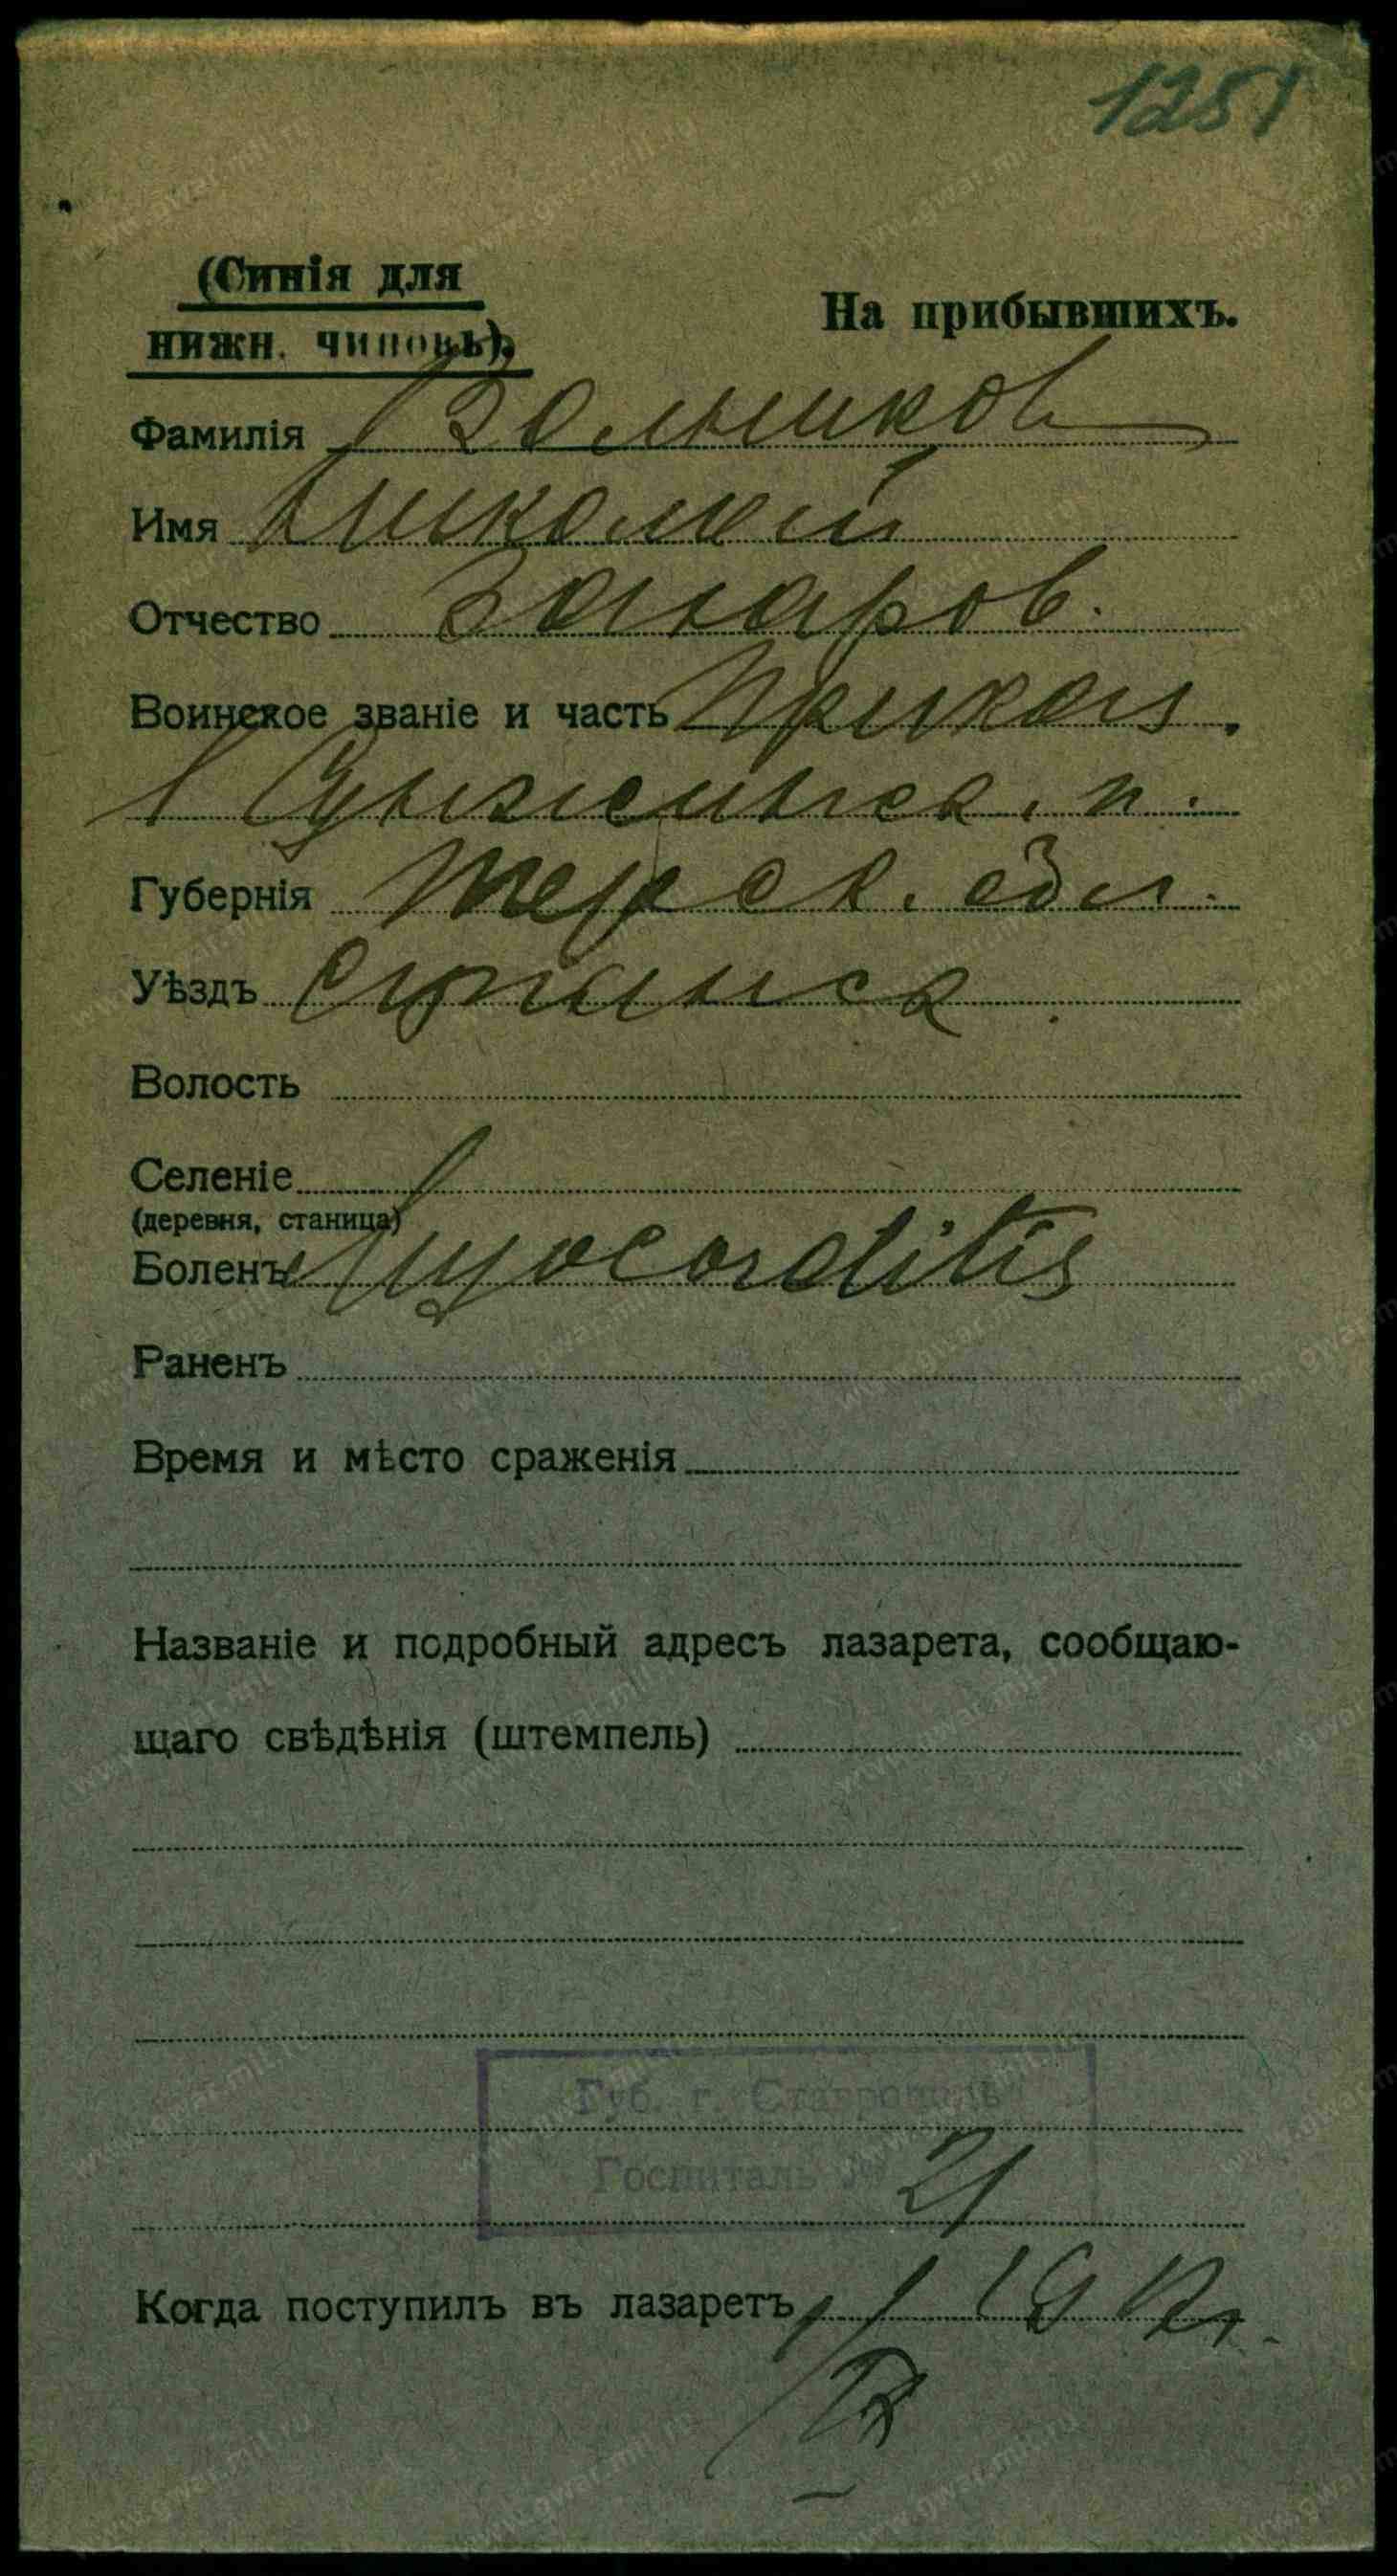 1251
(Синія для
нижн. чиновъ).
На прибывшихъ.
Фамилія
Имя Николай
Отчество Захаров.
Воинское званіе и часть Приказ.
1 Сунженск. п.
Губернія Терск. обл.
Уѣздъ
Волость
Селеніе
(деревня, станица)
Боленъ Myocarditis
Раненъ
Время и мѣсто сраженія
Названіе и подробный адресъ лазарета, сообщаю-
щаго свѣдѣнія (штемпель)
Губ. г. Ставрополь
Госпиталь № 21
Когда поступилъ въ лазаретъ